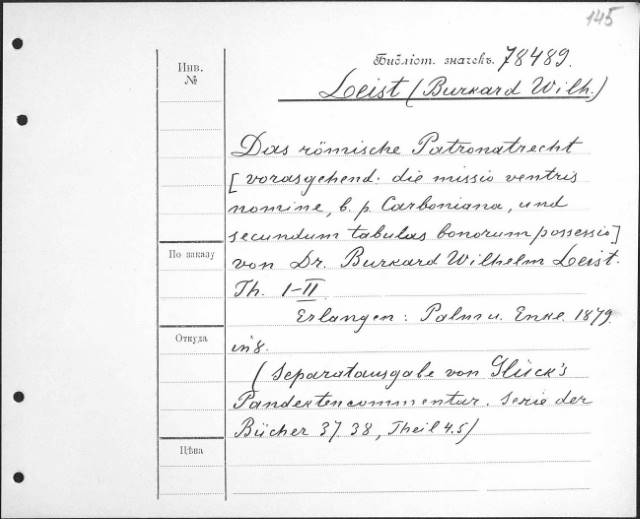 145
Инв. №
Библіот. значекъ. 78489.
Leist (Burkard Wilh.)
Das römische Patronatrecht
[vorasgehend: die missio ventris
nomine, b. p. Carboniana, und
secundum tabulas bonorum possessio]
По заказу
von Dr. Burkard Wilhelm Leist.
Th. I-II
Erlangen: Palm u. Enke. 1879.
Откуда
in 8.
(Separatausgabe von Glück's
Pandektencommentar. Serie der
Bücher 37. 38, Theil 4.5)
Цѣна